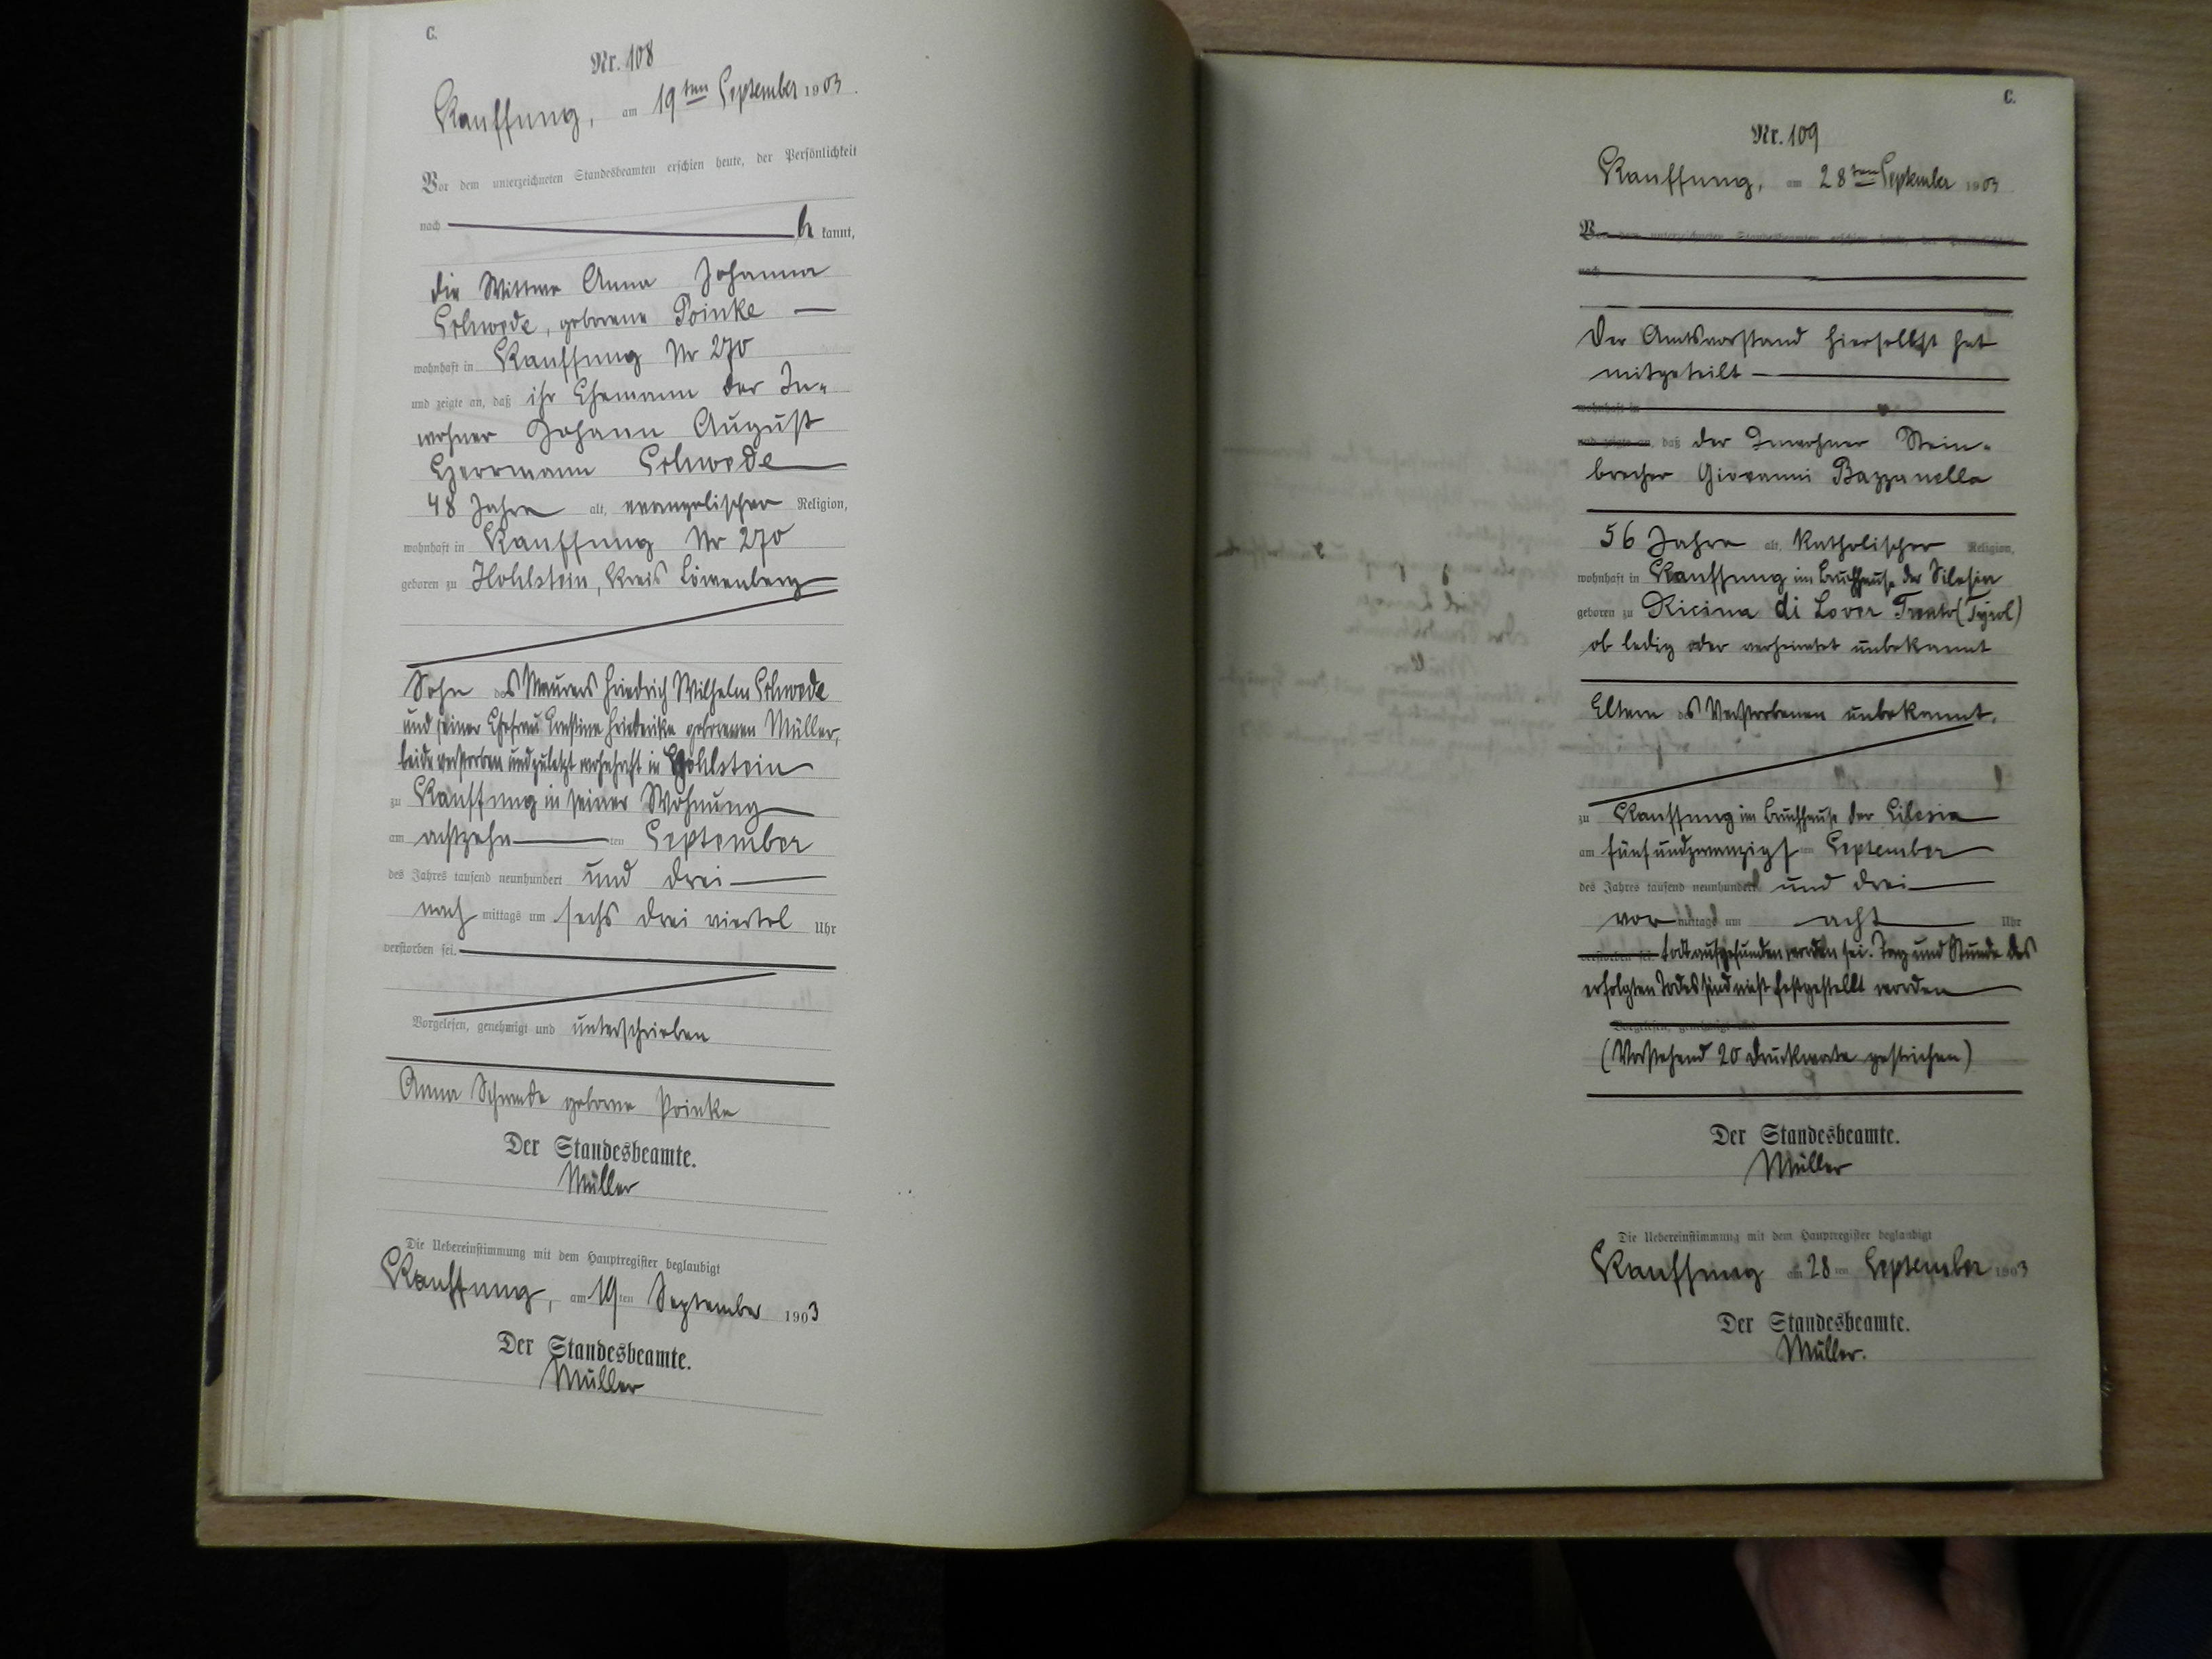 C.
Nr. 108
Kauffung, am 19ten September 1903.
Vor dem unterzeichneten Standesbeamten erschien heute, der Persönlichkeit
nach be kannt,
die Wittwe Anna Johanna
Schwede, geborene Poinke
wohnhaft in Kauffung Nr 270
und zeigte an, daß ihr Ehemann der In-
wohner Johann August
Herrmann Schwede
48 Jahre alt, evangelischer Religion,
wohnhaft in Kauffung Nr 270
geboren zu Hohlstein, Kreis Löwenberg
Sohn des Maurers Friedrich Wilhelm Schwede
und seiner Ehefrau Friederike geborenen Müller,
beide verstorben und zuletzt wohnhaft in Hohlstein
zu Kauffung in seiner Wohnung
am achtzehn ten September
des Jahres tausend neunhundert und drei
nach mittags um sechs drei viertel Uhr
verstorben sei.
Vorgelesen, genehmigt und unterschrieben
Anna Schwede geborne Poinke
Der Standesbeamte.
Müller
Die Uebereinstimmung mit dem Hauptregister beglaubigt
Kauffung, am 19ten September 1903
Der Standesbeamte.
Müller
C.
Nr. 109
Kauffung, am 28ten September 1903
Vor dem unterzeichneten Standesbeamten erschien heute, der Persönlichkeit
nach
kannt,
Der Amtsvorstand hierselbst hat
mitgeteilt
wohnhaft in
und zeigte an, daß der Inwohner Stein-
brecher Giovanni Bazzanella
56 Jahre alt, katholischer Religion,
wohnhaft in Kauffung im Bruchhause der Silesia
geboren zu Ricina di Lover Trento (Tyrol)
ob ledig oder verheiratet unbekannt
Eltern des Verstorbenen unbekannt.
zu Kauffung im Bruchhause der Silesia
am fünfundzwanzigsten September
des Jahres tausend neunhundert und drei
vor mittags um acht Uhr
verstorben sei. todt aufgefunden worden sei. Tag und Stunde des
erfolgten Todes sind nicht festgestellt worden
Vorgelesen, genehmigt und
(Vorstehend 20 Druckworte gestrichen)
Der Standesbeamte.
Müller
Die Uebereinstimmung mit dem Hauptregister beglaubigt
Kauffung am 28ten September 1903
Der Standesbeamte.
Müller.